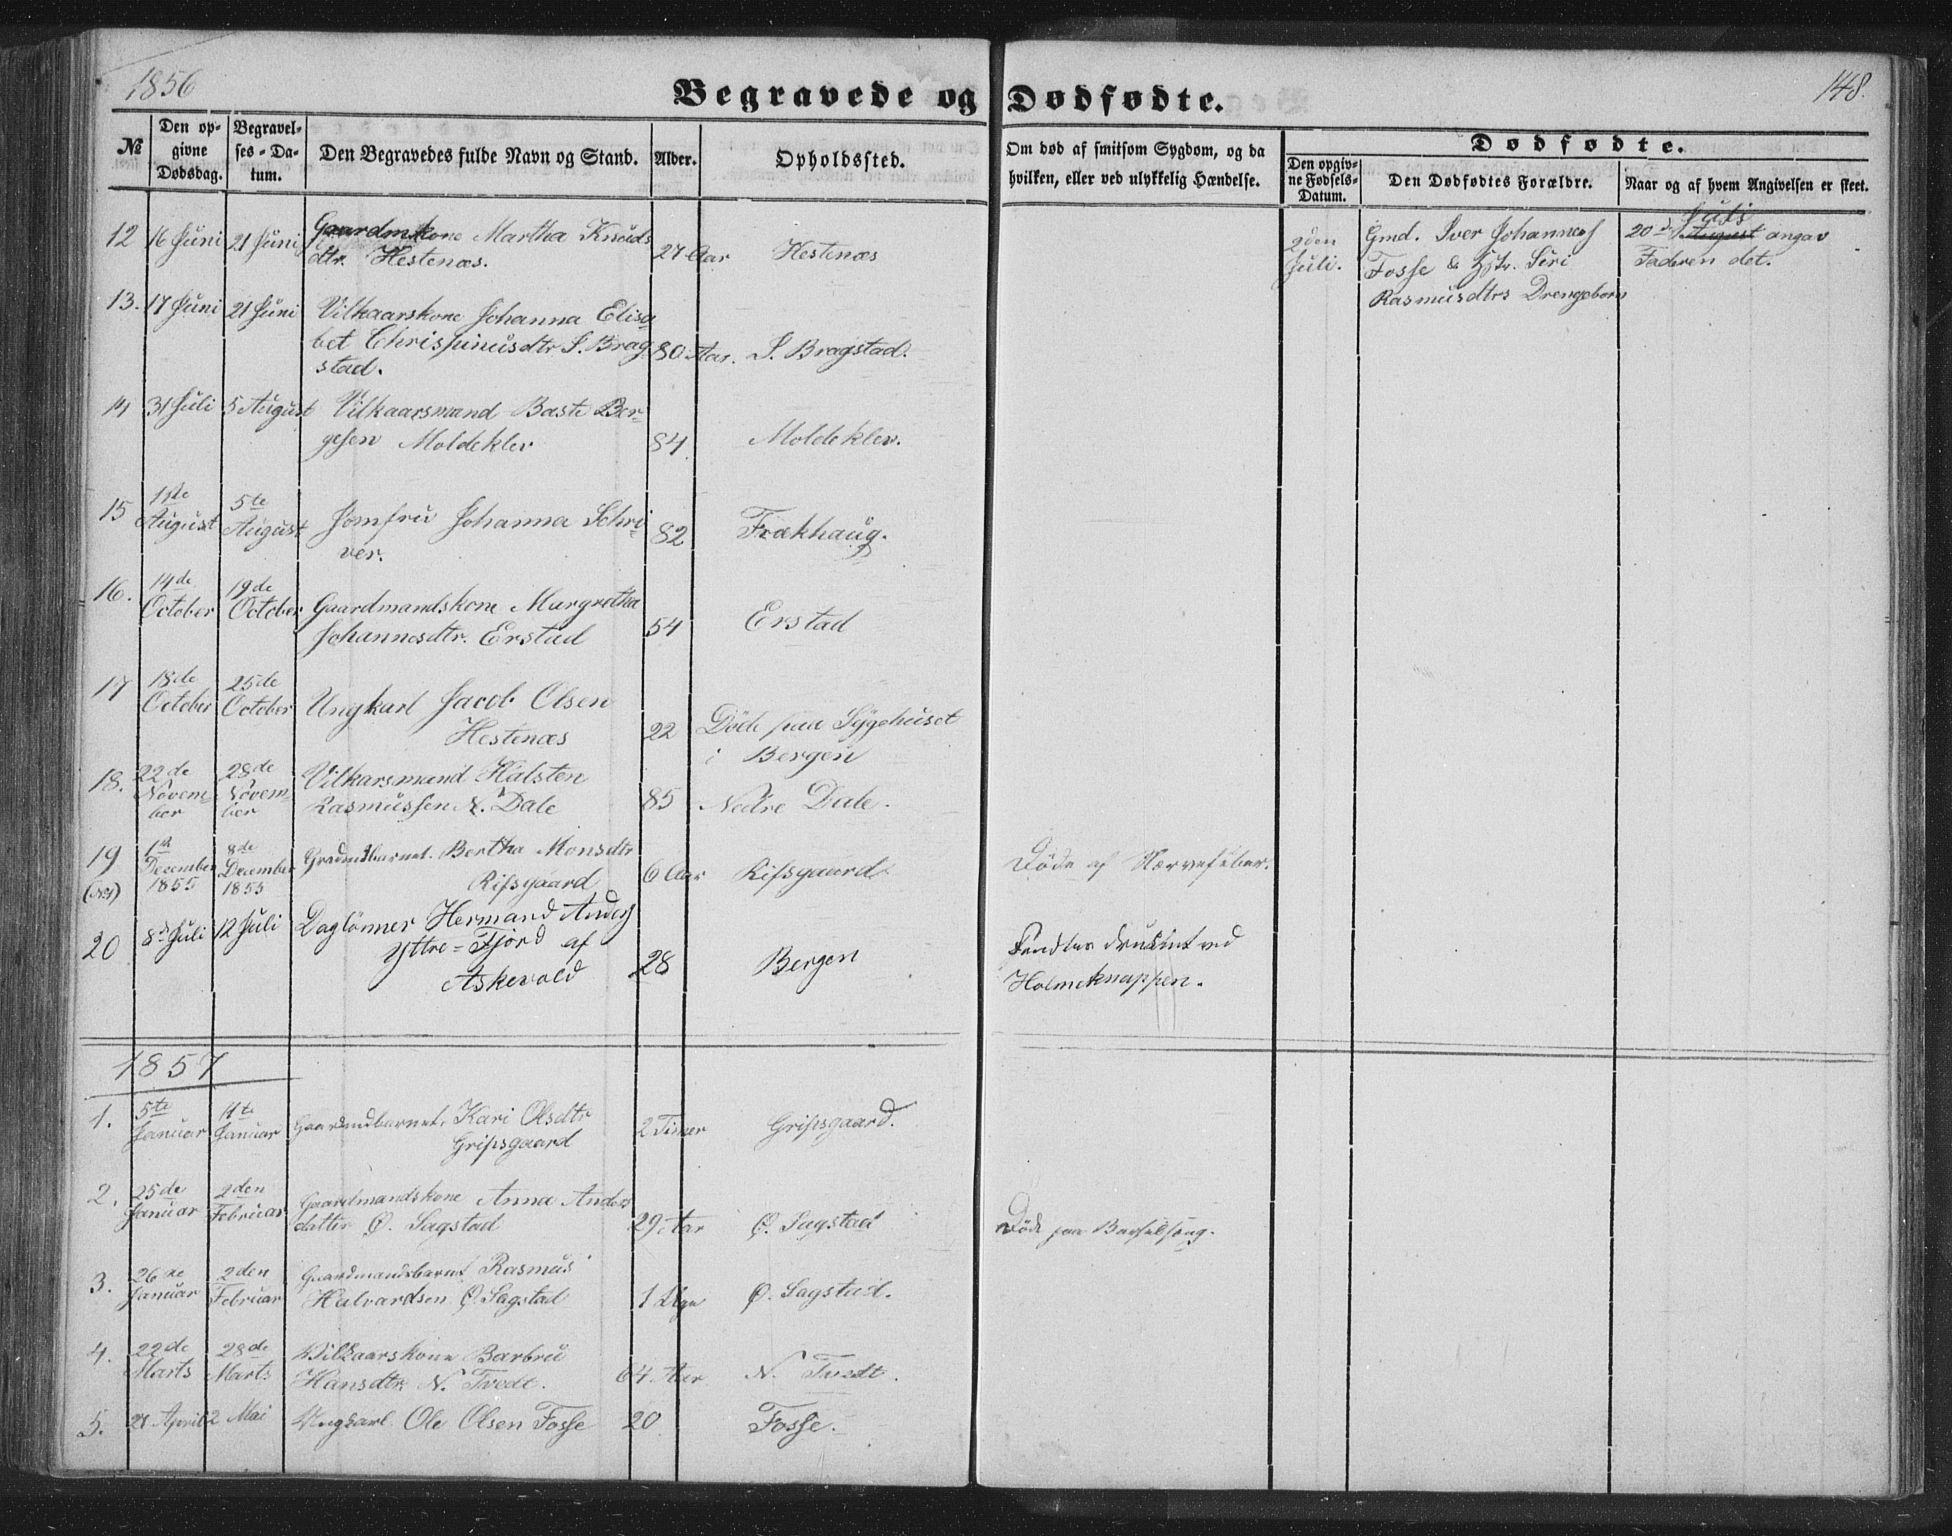 1856
148.
Begravede og Dødfødte.
№
Den opgivne Dødsdag.
Begravelses-Datum.
Den Begravedes fulde Navn og Stand.
Alder.
Opholdssted.
Om død af smitsom Sygdom, og da hvilken, eller ved ulykkelig Hændelse.
Dødfødte.
Den opgivne Fødsels-Datum.
Den Dødfødtes Forældre.
Naar og af hvem Angivelsen er skeet.
12 16 Juni 21 Juni Gaardmkone Martha Knuds
dtr. Hestenæs. 27 Aar Hestenæs
2den Juli. Gmd. Iver Johannes
Fosse & Hstr. Siri
Rasmusdtrs Drengebarn
20d Juli August angav
Faderen det.
13. 17 Juni 21 Juni Vilkaarskone Johanna Elisa
bet Chrispinusdtr S. Brag
stad. 80 Aar. S. Bragstad.
14 31 Juli 5 August Vilkaarsmand Baste Ber-
gesen Moldeklev 84 Moldeklev.
15 1ste August 5te August Jomfru Johanna Schri-
ver. 82 Frækhaug.
16. 14de October 19de October Gaardmandskone Margretha
Johannesdtr. Erstad 54 Erstad
17 18de October 25de October Ungkarl Jacob Olsen
Hestenæs 22 Døde paa Sygehuset
i Bergen
18. 22de Novem-
ber 28de Novem-
ber Vilkarsmand Halsten
Rasmussen N. Dale 85 Nedre Dale.
19 1ste December 1855 8de December 1855 Grdmdsbarnet. Bertha Monsdtr
Risgaard 6 Aar Risgaard. Døde af Nervefeber.
20 8d Juli 12 Juli Daglønner Hermand Anders
Yttre-Fjord af
Askevold 28 Bergen
Fandtes druknet ved
Holmeknappen.
1857
1. 5te Januar 11te Januar Gaardmdbarnet, Kari Olsdtr
Gripsgaard 2 Timer Gripsgaard.
2. 25de Januar 2den Februar Gaardmandskone Anna Anders
datter Ø. Sagstad 29 Aar Ø. Sagstad Døde paa Barselseng.
3. 26ne Januar 2den Februar Gaardmandsbarnet Rasmus
Halvardsen Ø. Sagstad 1 Ø. Sagstad.
4. 22de Marts 28de Marts Vilkaarskone Barbru
Hansdtr. N. Tvedt. 64 Aar N. Tvedt.
5. April 2 Mai Ungkarl Ole Olsen Fosse 20 Fosse.